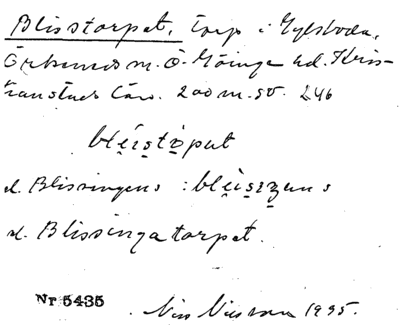 Blisstorpet, torp i Gylsboda,
Örkeneds sn. Ö. Göinge hd. Kris-
tianstads län. 200 m. sv. 246
d. Blissingens :
d. Blissingatorpet.
Nr 5435 Nils Nilsson 1935.